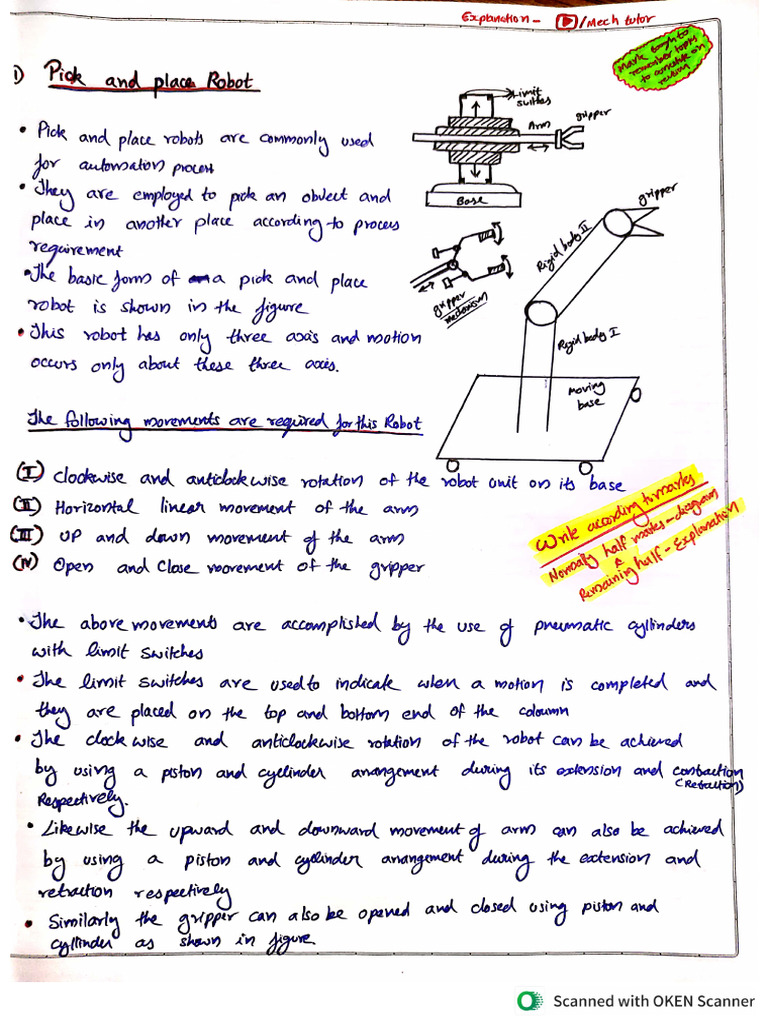 Explanation - ▶/Mech tutor
Mark though to
remember topics
to
on
1) Pick and place Robot
• Pick and place robots are commonly used
for automation process
• They are employed to pick an object and
place in another place according to process
requirement
• The basic form of a pick and place
robot is shown in the figure
• This robot has only three axis and motion
occurs only about these three axis.
Limit
suitles
Arm
gripper
Base
gripper
mechanism
gripper
Rigid body II
Rigid body I
moving
base
The following movements are required for this Robot
(I) clockwise and anticlockwise rotation of the robot unit on its base
(II) Horizontal linear movement of the arm
(III) UP and down movement of the arm
(IV) Open and Close movement of the gripper
Write according to marks
Normally half marks - diagram
&
Remaining half - Explanation
• The above movements are accomplished by the use of pneumatic cyllinders
with limit switches
• The limit switches are used to indicate when a motion is completed and
they are placed on the top and bottom end of the coloumn
• The clockwise and anticlockwise rotation of the robot can be achieved
by using a piston and cyllinder arrangement during its extension and contraction
Respectively. (Retraction)
• Likewise the upward and downward movement of arm can also be achieved
by using a piston and cyllinder arrangement during the extension and
retraction respectively
• Similarly the gripper can also be opened and closed using piston and
cyllinder as shown in figure.
Scanned with OKEN Scanner